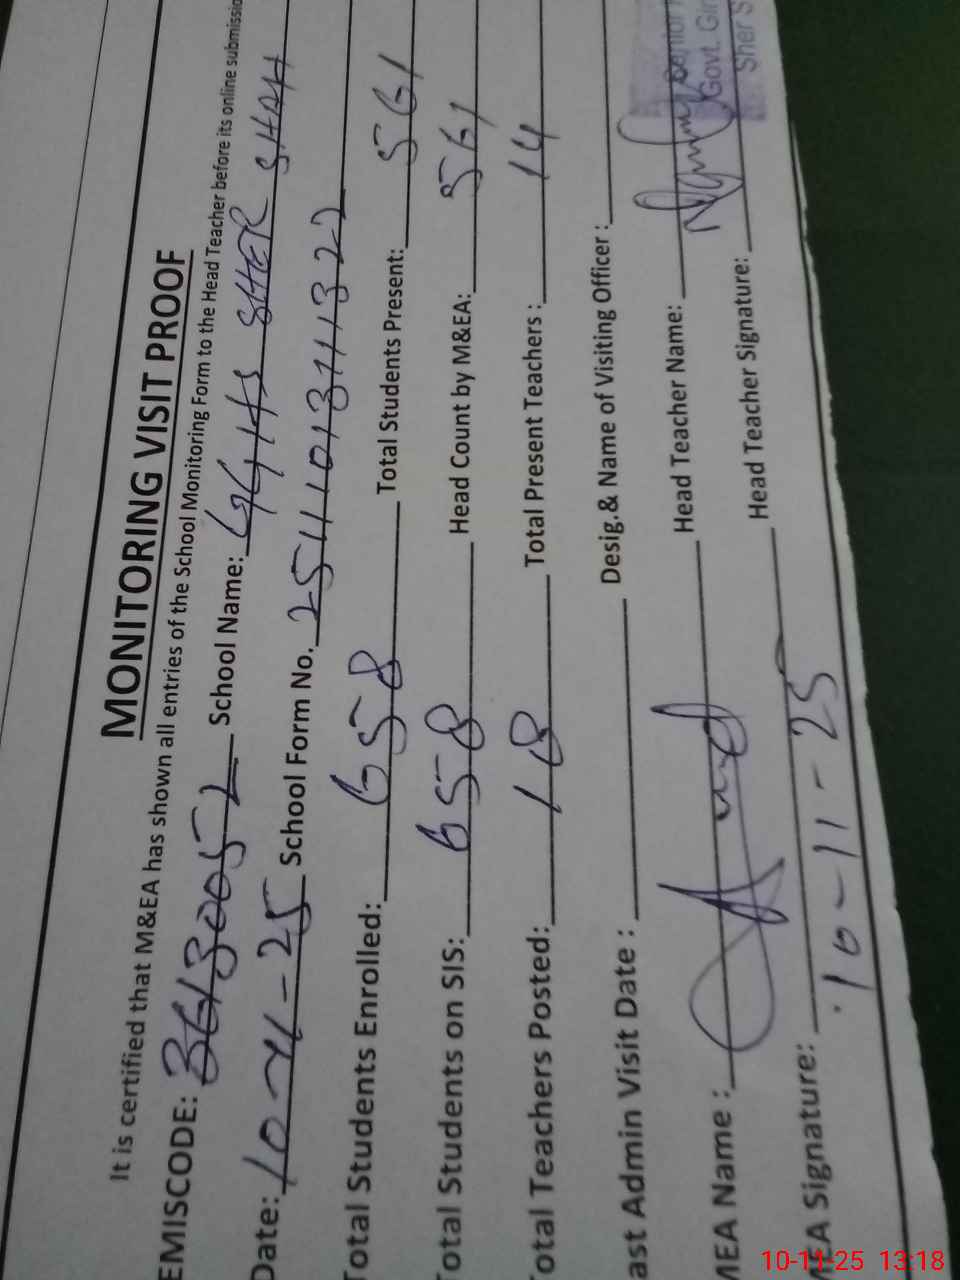 MONITORING VISIT PROOF
It is certified that M&EA has shown all entries of the School Monitoring Form to the Head Teacher before its online submissio
EMISCODE: 36130052 School Name: GGHS SHER SHAH
Date: 10-11-25 School Form No. 2511101371132 2
Total Students Enrolled: 658 Total Students Present: 561
Total Students on SIS: 658 Head Count by M&EA: 561
Total Teachers Posted: 18 Total Present Teachers : 14
ast Admin Visit Date : Desig.& Name of Visiting Officer :
MEA Name : Head Teacher Name:
MEA Signature: Head Teacher Signature:
10-11-25
Senior
Govt. Gir
Sher S
10-11-25 13:18